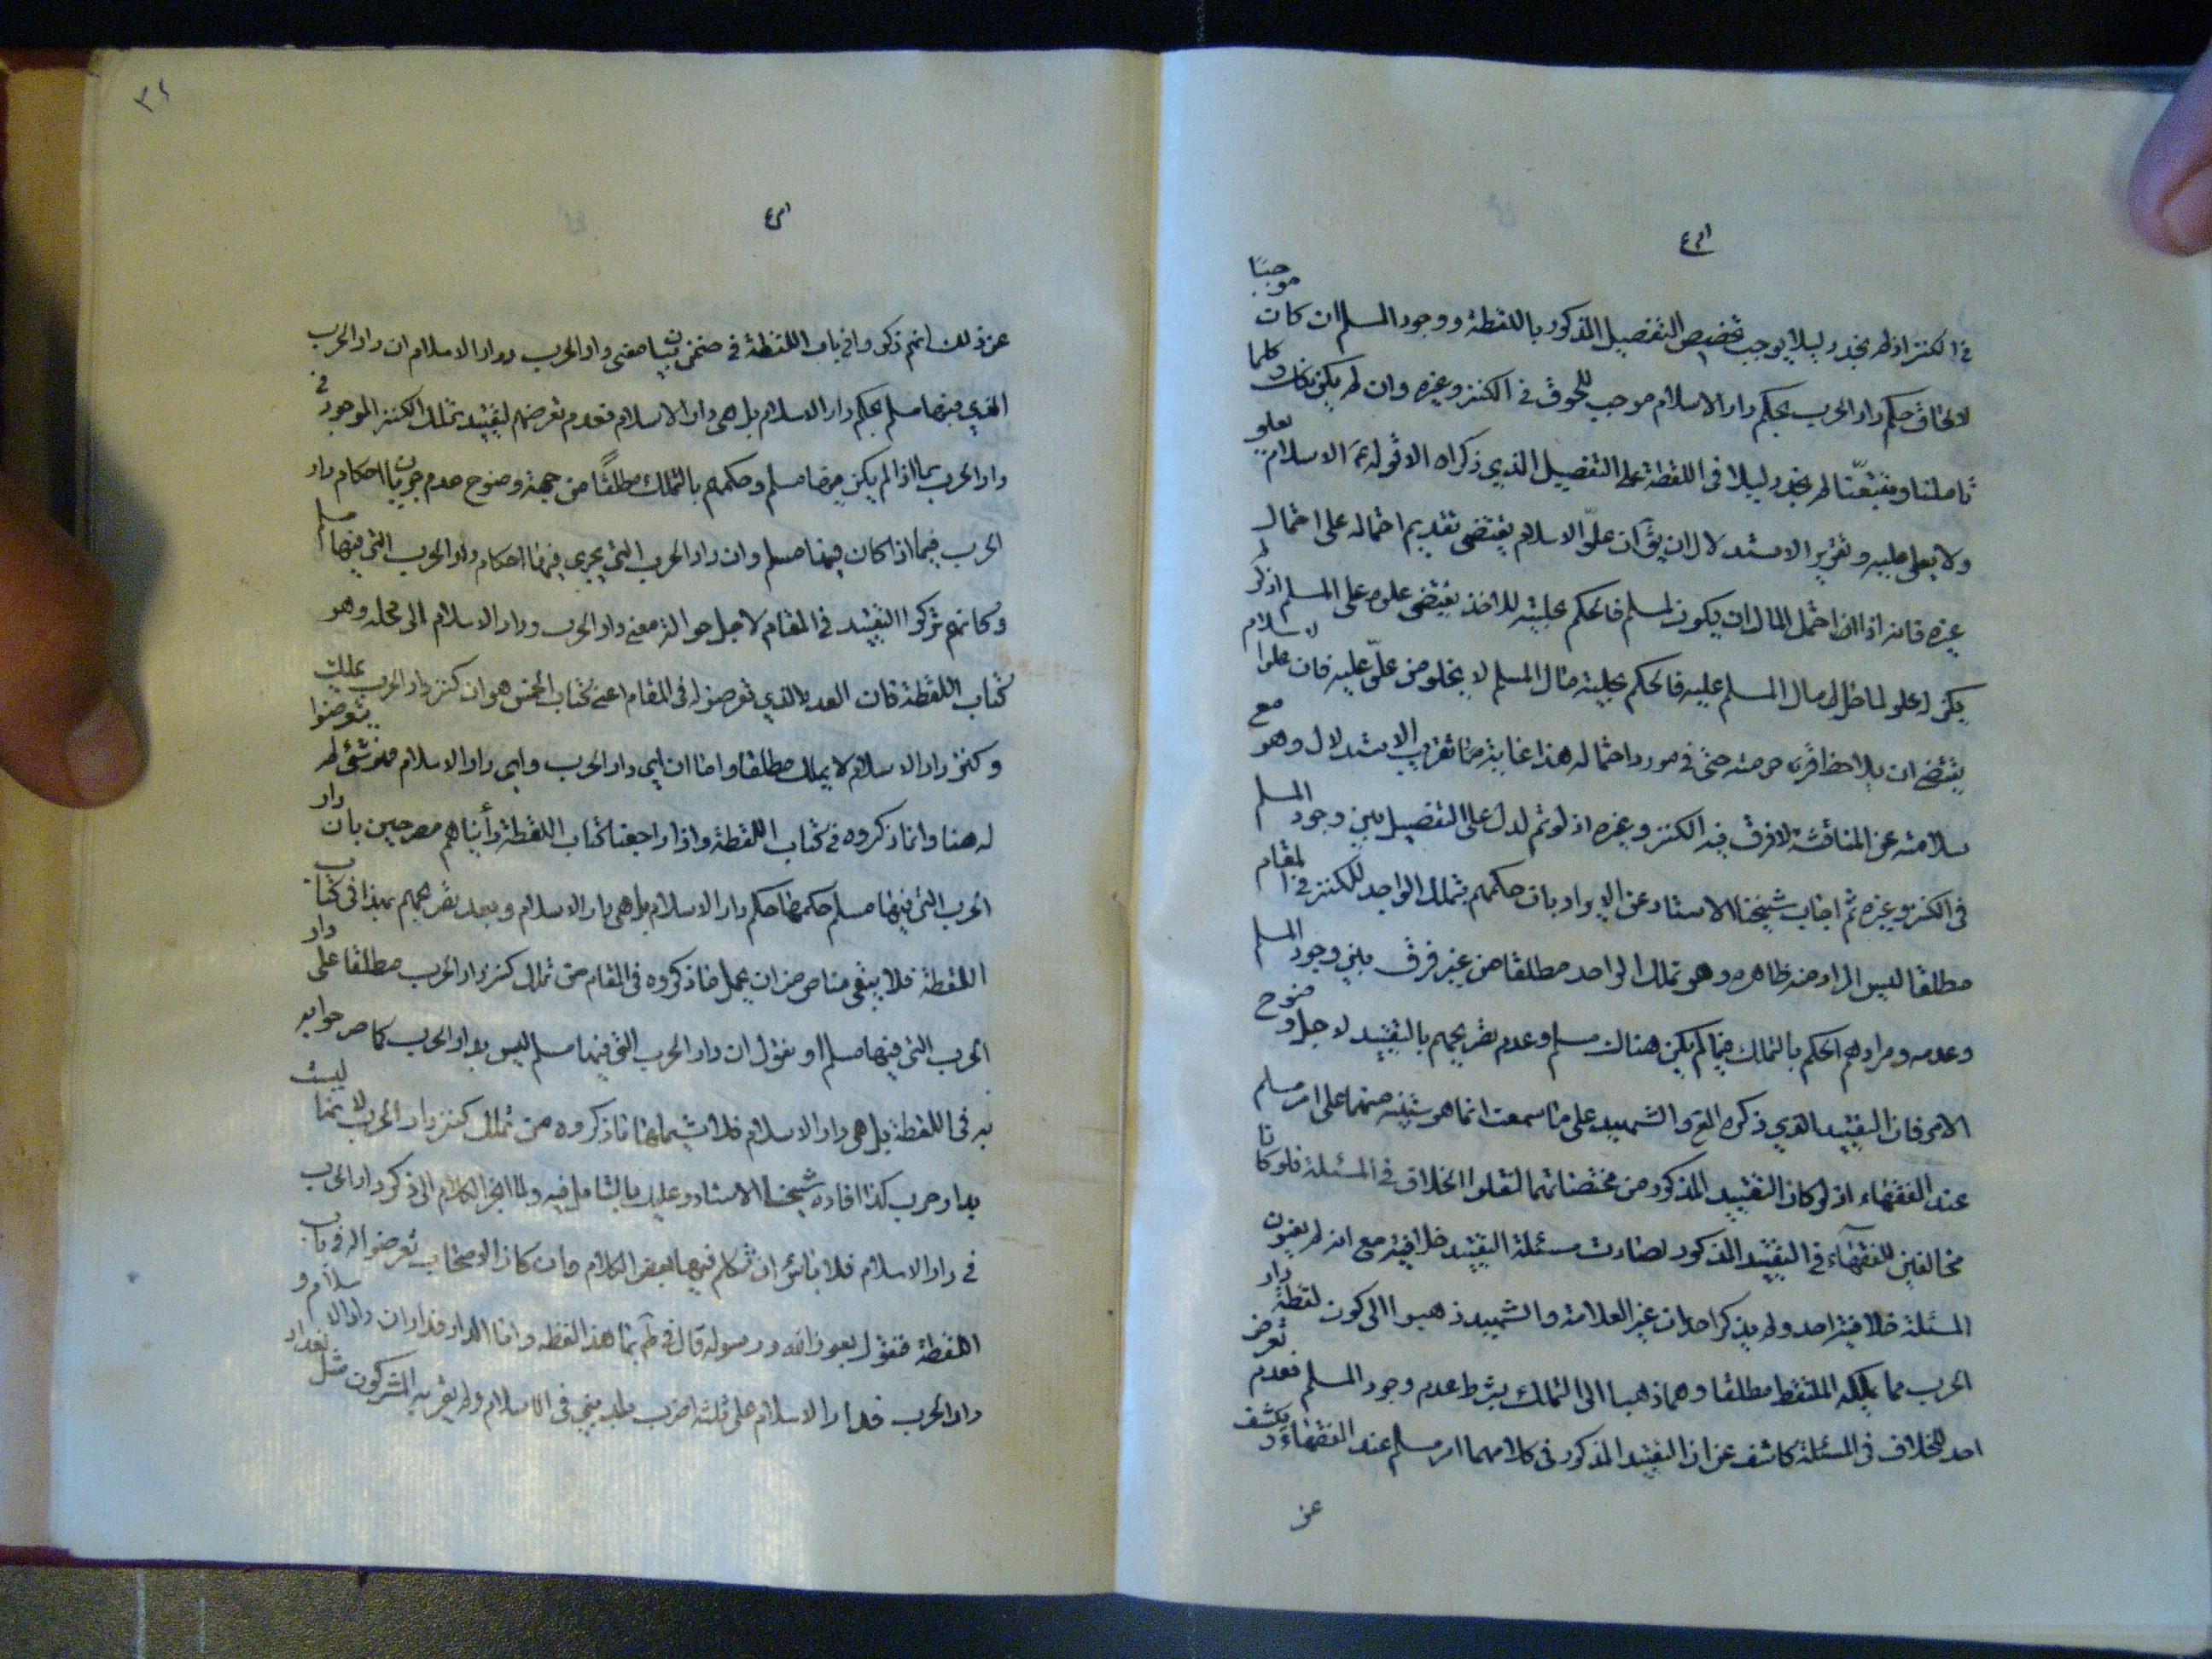 في الكنز اذ لم نجد دليلا يوجب تخصيص التفصيل المذكور باللقطة ووجود المسلم ان كان موجبًا
لالحاق حكم دار الحرب بحكم دار الاسلام موجب للحوق في الكنز وغيره وان لم يكن وكلما
تاملنا وتتبّعنا لم نجد دليلا في اللقطة على التفصيل الذي ذكراه الا قوله الاسلام يعلو
ولا يعلى عليه وتقرير الاستدلال ان يق ان علوّ الاسلام يقتضى تقديم احتماله على احتمال
غيره فانه اذا احتمل المال ان يكون لمسلم فالحكم بحليته للاخذ يقتضى علوه على المسلم اذ لم
يكن له علو لما حل له مال المسلم عليه فالحكم بحلية مال المسلم لا يخلو من علوّ عليه فان علو الاسلام
يقتضى ان يلاحظ حرمته حتى في مورد احتماله هذا غاية ما تقريب الاستدلال وهو مع
سلامته عن المناقشة لا فرق فيه الكنز وغيره اذ لو تم لدل على التفصيل بين وجود المسلم
في الكنز وغيره ثم اجاب شيخنا الاستاد عن الايراد بان حكمهم بتملك الواجد للكنز في المقام
مطلقا ليس المراد منه ظاهره وهو تملك الواجد مطلقا من غير فرق بين وجود المسلم
وعدمه ومرادهم الحكم بالتملك فيما لم يكن هناك مسلم وعدم تصريحهم بالتقييد لاجل وضوح
الامر فان التقييد الذي ذكره المح والشهيد على ما سمعت انما هو تنبيه منهما على امر مسلم
عند الفقهاء اذ لو كان التقييد المذكور من مختصاتهما لنقلوا الخلاف في المسئلة فلو كانا
مخالفين للفقهاء في التقييد المذكور لصارت مسئلة التقييد خلافية مع انه لم يعنون
المسئلة خلافية احد ولم يذكر احد ان غير العلامة والشهيد ذهبوا الى كون لقطة دار
الحرب مما يملكه الملتقط مطلقا وهما ذهبا الى التملك بشرط عدم وجود المسلم فعدم تعرض
احد للخلاف في المسئلة كاشف عن ان التقييد المذكور في كلامهما امر مسلم عند الفقهاء ويكشف
عن
٣٤
عن ذلك انهم ذكروا في باب اللقطة في ضمن بيان معنى دار الحرب ودار الاسلام ان دار الحرب
الذي فيها مسلم بحكم دار الاسلام بل هى دار الاسلام فعدم تعرضهم لتقييد تملك الكنز الموجود في
دار الحرب بما اذا لم يكن فيها مسلم وحكمهم بالتملك مطلقًا من جهة وضوح عدم جريان احكام دار
الحرب فيما اذا كان فيها مسلم وان دار الحرب التي يجرى فيها احكام دار الحرب التي فيها مسلم
وكانهم تركوا التقييد في المقام لاجل حوالة معنى دار الحرب ودار الاسلام الى محله وهو
كتاب اللقطة فان القدر الذي تعرضوا له في المقام اعني كتاب الخمس هو ان كنز دار الحرب يملك
وكنز دار الاسلام لا يملك مطلقا واما ان اي دار الحرب واي دار الاسلام فلم يتعرضوا
له هنا وانما ذكروه في كتاب اللقطة واذا راجعنا كتاب اللقطة رأيناهم مصرحين بان دار
الحرب التي فيها مسلم حكمها حكم دار الاسلام بل هى دار الاسلام وبعد تصريحهم بهذا في كتاب
اللقطة فلا يبقى مناص من ان يحمل ما ذكروه في المقام من تملك كنز دار الحرب مطلقا على دار
الحرب التي فيها مسلم او نقول ان دار الحرب التي فيها مسلم ليس بدار الحرب كما صرحوا به
به في اللقطة بل هى دار الاسلام فلا يشملها ما ذكروه من تملك كنز دار الحرب لانها ليست
بدار حرب كذا افاده شيخنا الاستاد وعليك بالتامل فيه ولما انجر الكلام الى ذكر دار الحرب
في دار الاسلام فلا باس ان نتكلم فيها بعض الكلام وان كان الاصحاب تعرضوا له في باب
اللقطة فنقول بعون الله ورسوله قال في هذا لفظه واما الدار فداران دار الاسلام و
دار الحرب فدار الاسلام على ثلثة اضرب بلد بني في الاسلام ولم يقربه المشركون مثل بغداد